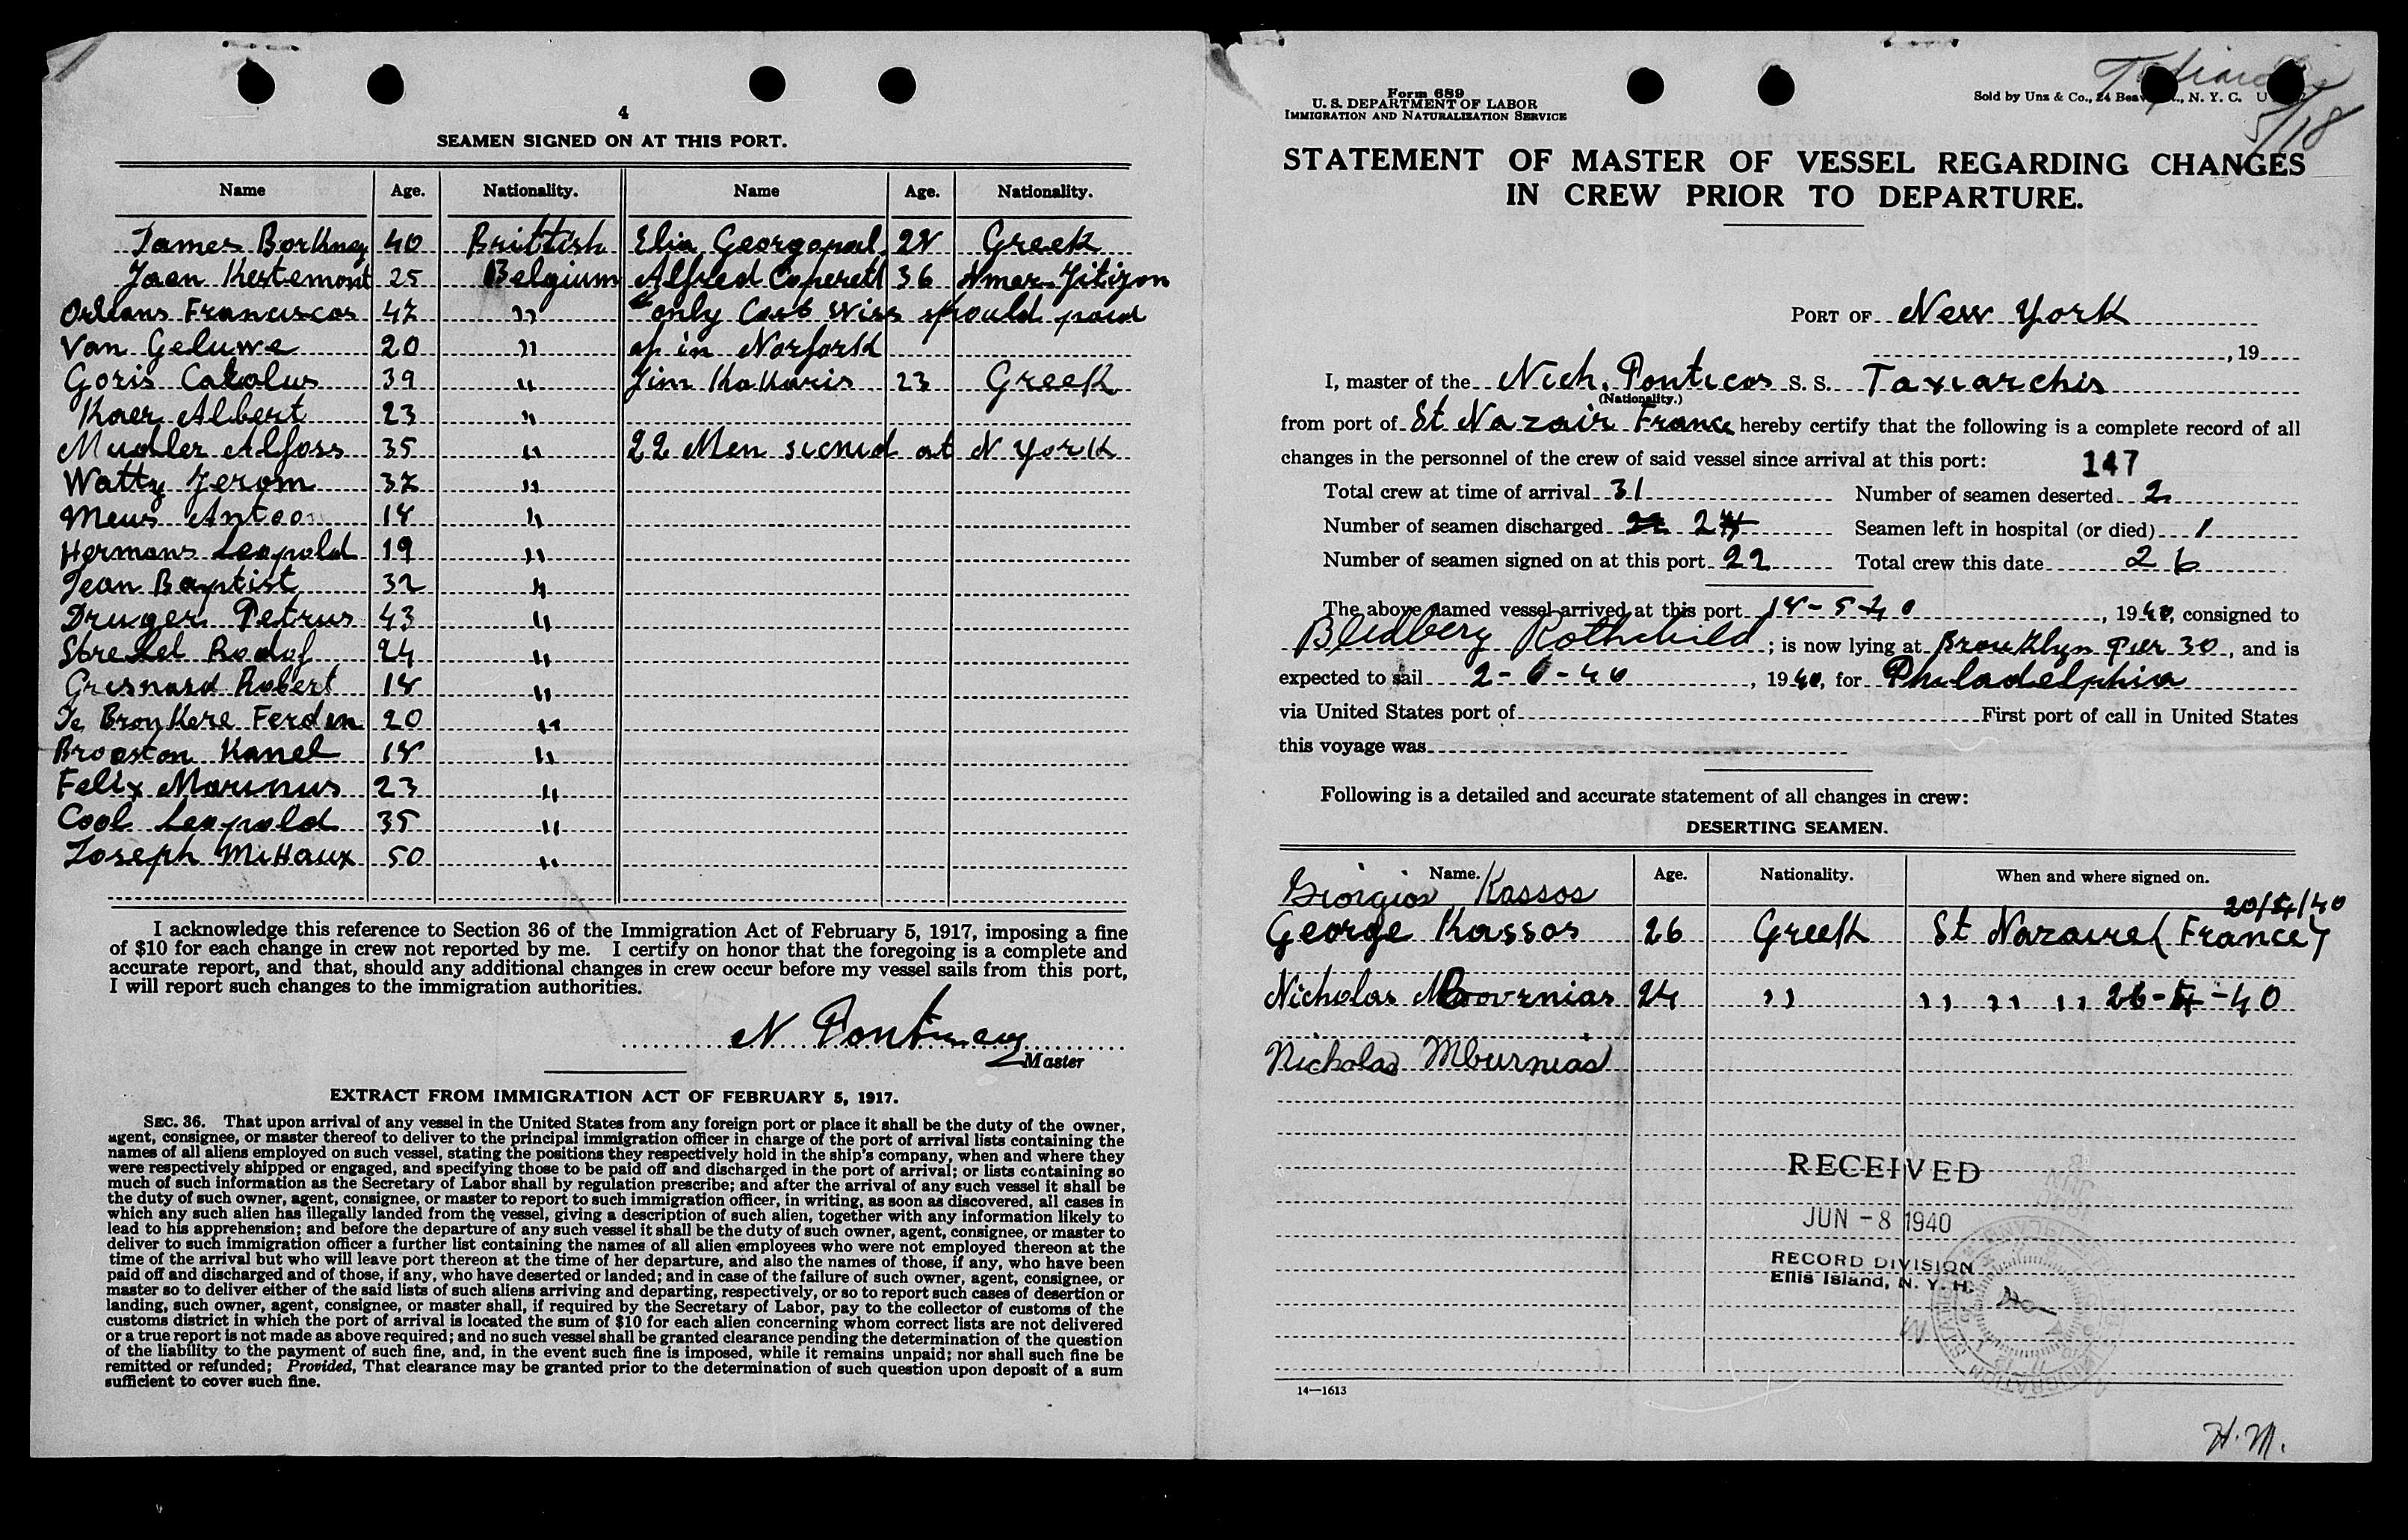 4
SEAMEN SIGNED ON AT THIS PORT.
Name Age. Nationality. Name Age. Nationality.
James Borkhney 40 Brittish Elia Georgopoul 28 Greek
Jaen Kestemont 25 Belgium Alfred Coperetl 36 Amer. Zitizon
Orlans Franciscos 47 "
only
Van Geluwe 20 " in Norfork
Goris Carolus 39 " Jim Kokkaris 23 Greek
Kaer Albert 23 "
Mudler Alfoss 35 " 22 Men sicnid at N York
Watty Jerom 37 "
Meus Antoo 18 "
Hermans Leopold 19 "
Jean Baptist 32 "
Druger Petrus 43 "
Strekel Rodof 24 "
Grisnard Robert 18 "
De Bronkere Ferden 20 "
Brooston Kanel 18 "
Felix Marinus 23 "
Cool Leopold 35 "
Joseph Mittaux 50 "
I acknowledge this reference to Section 36 of the Immigration Act of February 5, 1917, imposing a fine
of $10 for each change in crew not reported by me. I certify on honor that the foregoing is a complete and
accurate report, and that, should any additional changes in crew occur before my vessel sails from this port,
I will report such changes to the immigration authorities.
N Ponticos
Master
EXTRACT FROM IMMIGRATION ACT OF FEBRUARY 5, 1917.
SEC. 36. That upon arrival of any vessel in the United States from any foreign port or place it shall be the duty of the owner,
agent, consignee, or master thereof to deliver to the principal immigration officer in charge of the port of arrival lists containing the
names of all aliens employed on such vessel, stating the positions they respectively hold in the ship's company, when and where they
were respectively shipped or engaged, and specifying those to be paid off and discharged in the port of arrival; or lists containing so
much of such information as the Secretary of Labor shall by regulation prescribe; and after the arrival of any such vessel it shall be
the duty of such owner, agent, consignee, or master to report to such immigration officer, in writing, as soon as discovered, all cases in
which any such alien has illegally landed from the vessel, giving a description of such alien, together with any information likely to
lead to his apprehension; and before the departure of any such vessel it shall be the duty of such owner, agent, consignee, or master to
deliver to such immigration officer a further list containing the names of all alien employees who were not employed thereon at the
time of the arrival but who will leave port thereon at the time of her departure, and also the names of those, if any, who have been
paid off and discharged and of those, if any, who have deserted or landed; and in case of the failure of such owner, agent, consignee, or
master so to deliver either of the said lists of such aliens arriving and departing, respectively, or so to report such cases of desertion or
landing, such owner, agent, consignee, or master shall, if required by the Secretary of Labor, pay to the collector of customs of the
customs district in which the port of arrival is located the sum of $10 for each alien concerning whom correct lists are not delivered
or a true report is not made as above required; and no such vessel shall be granted clearance pending the determination of the question
of the liability to the payment of such fine, and, in the event such fine is imposed, while it remains unpaid; nor shall such fine be
remitted or refunded; Provided, That clearance may be granted prior to the determination of such question upon deposit of a sum
sufficient to cover such fine.
Form 689
U. S. DEPARTMENT OF LABOR
IMMIGRATION AND NATURALIZATION SERVICE
Sold by Unz & Co., 24 Beav N. Y. C.
5/18
STATEMENT OF MASTER OF VESSEL REGARDING CHANGES
IN CREW PRIOR TO DEPARTURE.
PORT OF New York
, 19
I, master of the Nich. Ponticos S. S. Taxiarchis
(Nationality.)
from port of St Nazair France hereby certify that the following is a complete record of all
changes in the personnel of the crew of said vessel since arrival at this port: 147
Total crew at time of arrival 31 Number of seamen deserted 2
Number of seamen discharged 24 Seamen left in hospital (or died) 1
Number of seamen signed on at this port 22 Total crew this date 26
The above named vessel arrived at this port 18-5-40, 1940, consigned to
Bledberg Rothchild; is now lying at Brouklyn Pier 30, and is
expected to sail 2-6-40, 1940, for Philadelphia
via United States port of First port of call in United States
this voyage was
Following is a detailed and accurate statement of all changes in crew:
DESERTING SEAMEN.
Name. Age. Nationality. When and where signed on.
Giorgios Kassos
20/4/40
George Kassos 26 Greek St Nazaire (France)
Nicholas Mbovrnias 24 " " " " 26-4-40
Nicholas Mburnias
RECEIVED
JUN -8 1940
RECORD DIVISION
Ellis Island, N. Y. H.
14—1613
H. M.